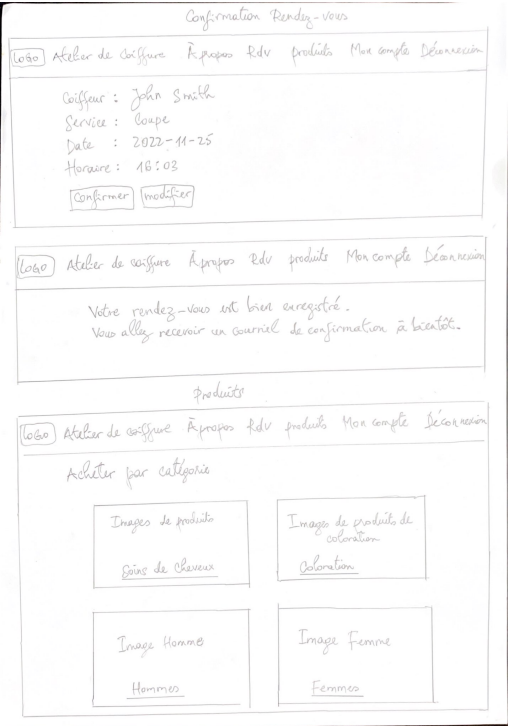 Confirmation Rendez-vous
LOGO Atelier de coiffure À propos Rdv produits Mon compte Déconnexion
Coiffeur : John Smith
Service : Coupe
Date : 2022-11-25
Horaire : 16:03
Confirmer modifier
LOGO Atelier de coiffure À propos Rdv produits Mon compte Déconnexion
Votre rendez-vous est bien enregistré.
Vous allez recevoir un courriel de confirmation à bientôt.
Produits
LOGO Atelier de coiffure À propos Rdv produits Mon compte Déconnexion
Acheter par catégorie
Images de produits
Soins de cheveux
Images de produits de
coloration
Coloration
Image Homme
Hommes
Image Femme
Femmes